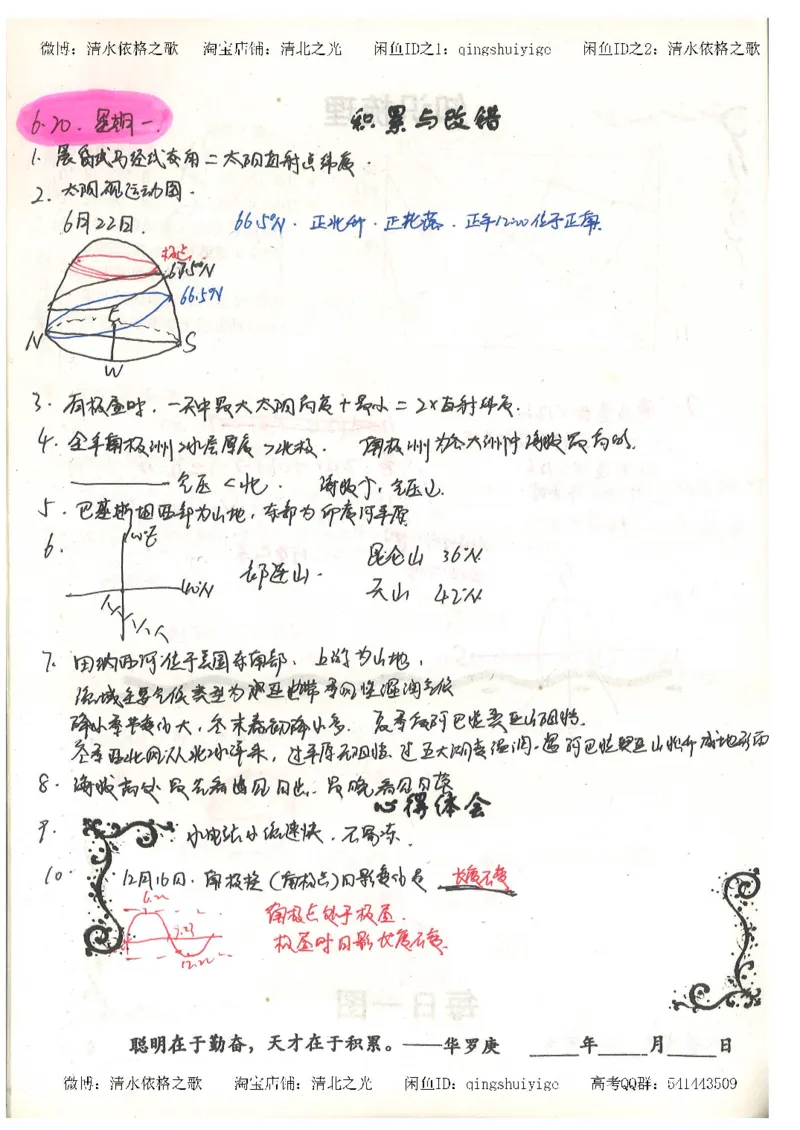 微博：清水依格之歌 淘宝店铺：清北之光 闲鱼ID之1：qingshuiyige 闲鱼ID之2：清水依格之歌
6.20. 星期一.
积累与改错
1. 晨昏线与经线夹角 = 太阳直射点纬度.
2. 太阳视运动图.
6月22日.
66.5°N. 正北升. 正北落. 正午12:00位于正南.
极点
67.5°N
66.5°N
E
N
S
W
3. 有极昼时, 一天中最大太阳高度+最小 = 2×直射纬度.
4. 全年南极洲冰层厚度>北极. 南极洲为各大洲中海拔最高的.
气压<北. 海拔↑, 气压↓.
5. 巴基斯坦西部为山地, 东部为印度河平原
6.
100°E
40°N
祁连山.
昆仑山 36°N.
天山 42°N.
7. 田纳西河位于美国东南部. 上游为山地,
流域主要气候类型为亚热带季风性湿润气候
降水季节变化大, 冬末春初降水多. 夏季有阿巴拉契亚山阻挡.
冬季西北风从北冰洋来, 过平原无阻挡. 过五大湖变湿润. 遇阿巴拉契亚山抬升成地形雨
8. 海拔高处最先看见日出. 最晚看见日落
心得体会
9. 水电站水流速快, 不易冻.
10. 12月16日. 南极(南极点)日影变化是 长度不变
6.22
9.23
12.22
南极点处于极昼.
极昼时日影长度不变.
聪明在于勤奋，天才在于积累。——华罗庚 年 月 日
微博：清水依格之歌 淘宝店铺：清北之光 闲鱼ID：qingshuiyige 高考QQ群：541443509